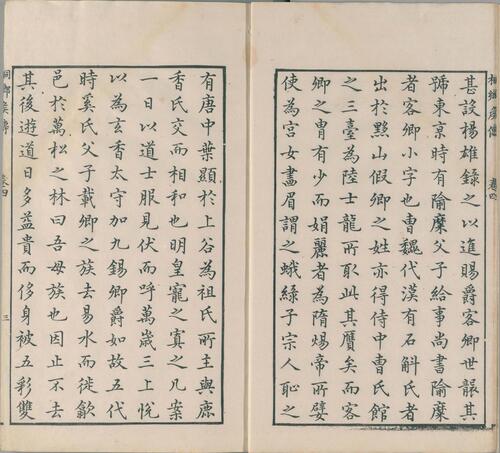 卷四
甚設楊雄錄之以進賜爵客卿世襲其
號東京時有隃糜父子給事尚書隃糜
者客卿小字也曹魏代漢有石斛氏者
出於黟山假卿之姓亦得侍中曹氏館
之三臺為陸士龍所取此其贗矣而客
卿之冑有少而娟麗者為隋煬帝所嬖
使為宮女畫眉謂之蛾綠子宗人恥之
有唐中葉顯於上谷為祖氏所主與麝
香氏交而相和也明皇寵之寘之几案
一日以道士服見伏而呼萬歲三上悅
以為玄香太守加九錫卿爵如故五代
時奚氏父子載卿之族去易水而徙歙
邑於萬松之林曰吾母族也因止不去
其後遊道日多益貴而侈身被五彩雙
卷四
三